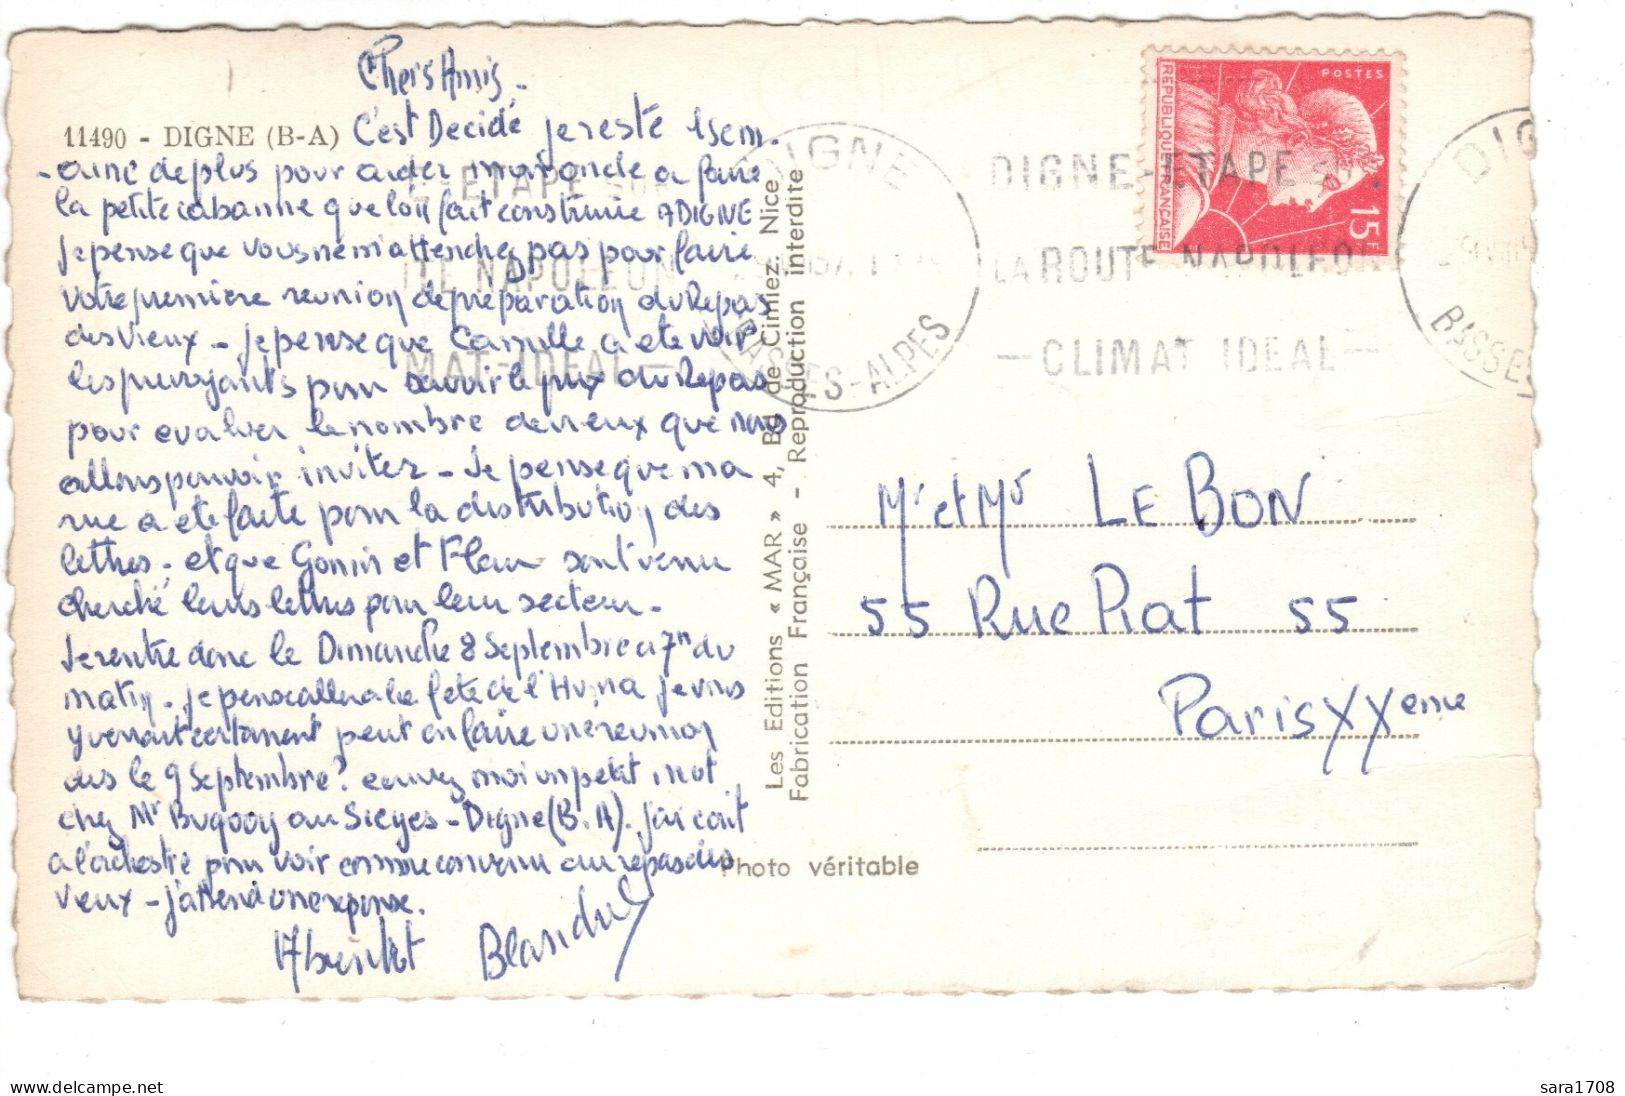 Chers Amis.
11490 - DIGNE (B-A)
C'est Decidé je reste 1 sem.
- aine de plus pour aider ma a faire
la petite cabanne que lon fait construire A DIGNE
Je pense que vous ne m'attendez pas pour faire
votre premiere reunion de preparation du Repas
des Vieux - Je pense que Camille a ete voir
les pour savoir le prix du Repas
pour evaluer le nombre de vieux que nous
allons pouvoir inviter - Je pense que ma
rue a ete faite pour la distribution des
lettres - et que Gonin et Fleur sont venu
cherché leurs lettres pour leur secteur -
Je rentre donc le Dimanche 8 Septembre a 7h du
matin - je pense aller a la fete de l'Huma je vous
y verrait certainement peut on faire une reunion
des le 9 Septembre? ecrivez moi un petit mot
chez Mr au Sieyes - Digne (B.A). j'ai ecrit
a l'orchestre pour voir comme convenu au repas des
Vieux - j'attend une reponse.
A bientot
DIGNE
BASSES-ALPES
DIGNE-ETAPE SUR
LA ROUTE NAPOLEON
— CLIMAT IDEAL —
DIG
BASSE
E-ETAPE SUR
TE NAPOLEON
MAT IDEAL —
POSTES
REPUBLIQUE FRANÇAISE
15F
Les Editions « MAR » 4, Bd de Cimiez. Nice
Fabrication Française - Reproduction interdite
Mr et Mr LE BON
55 Rue Pixérécourt 55
Paris XXeme
Photo véritable
delcampe.net
sara1708